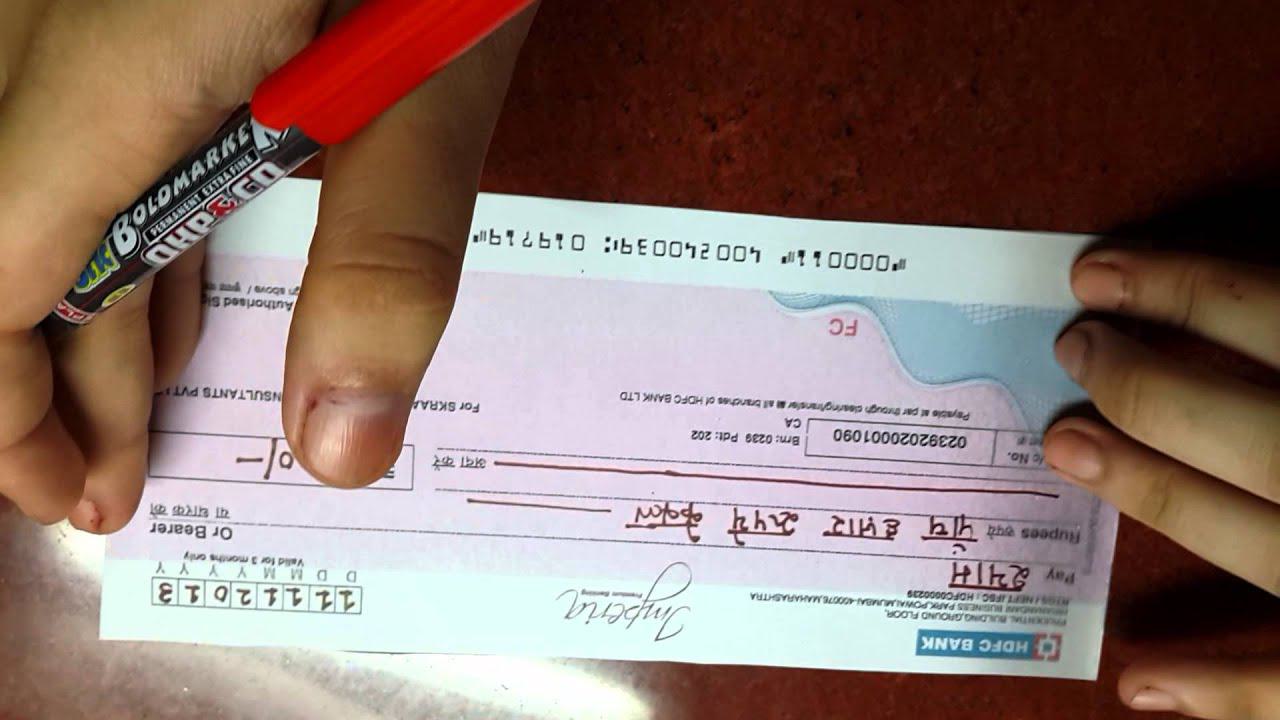 HDFC BANK
PRUDENTIAL BUILDING,GROUND FLOOR,
HIRANANDANI BUSINESS PARK,POWAI,MUMBAI-400076,MAHARASHTRA
RTGS / NEFT IFSC : HDFC0000239
Imperia
Premium Banking
11112013
D D M M Y Y Y Y
Valid for 3 months only
Pay श्याम
Or Bearer
या धारक को
Rupees रुपये पांच हजार रुपये केवल
अदा करें
0/-
c No. 02392020001090
Brn: 0239 Pdt: 202
CA
Payable at par through clearing/transfer at all branches of HDFC BANK LTD
For SKRAA NSULTANTS PVT
FC
Authorised Sig
gn above /
"000011" 400240039: 019719"
BOLDMARKE
PERMANENT EXTRA FINE
OHP & CD